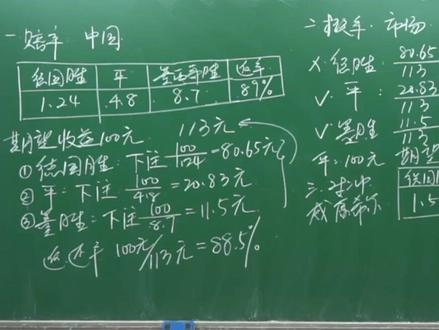 一 赔率 中国
德国胜 平 墨西哥胜 返率
1.24 4.8 8.7 89%
期望收益100元 113元
①德国胜:下注 100/124 =80.65元
②平:下注 100/4.8 =20.83元
③墨胜:下注 100/8.7 =11.5元
返还率 100元/113元=88.5%
二 概率 市场
X:德胜: 80.65/113
√:平: 20.83/113
√:墨胜 11.5/113
平:100元 期望
三 对冲
德国
1.5